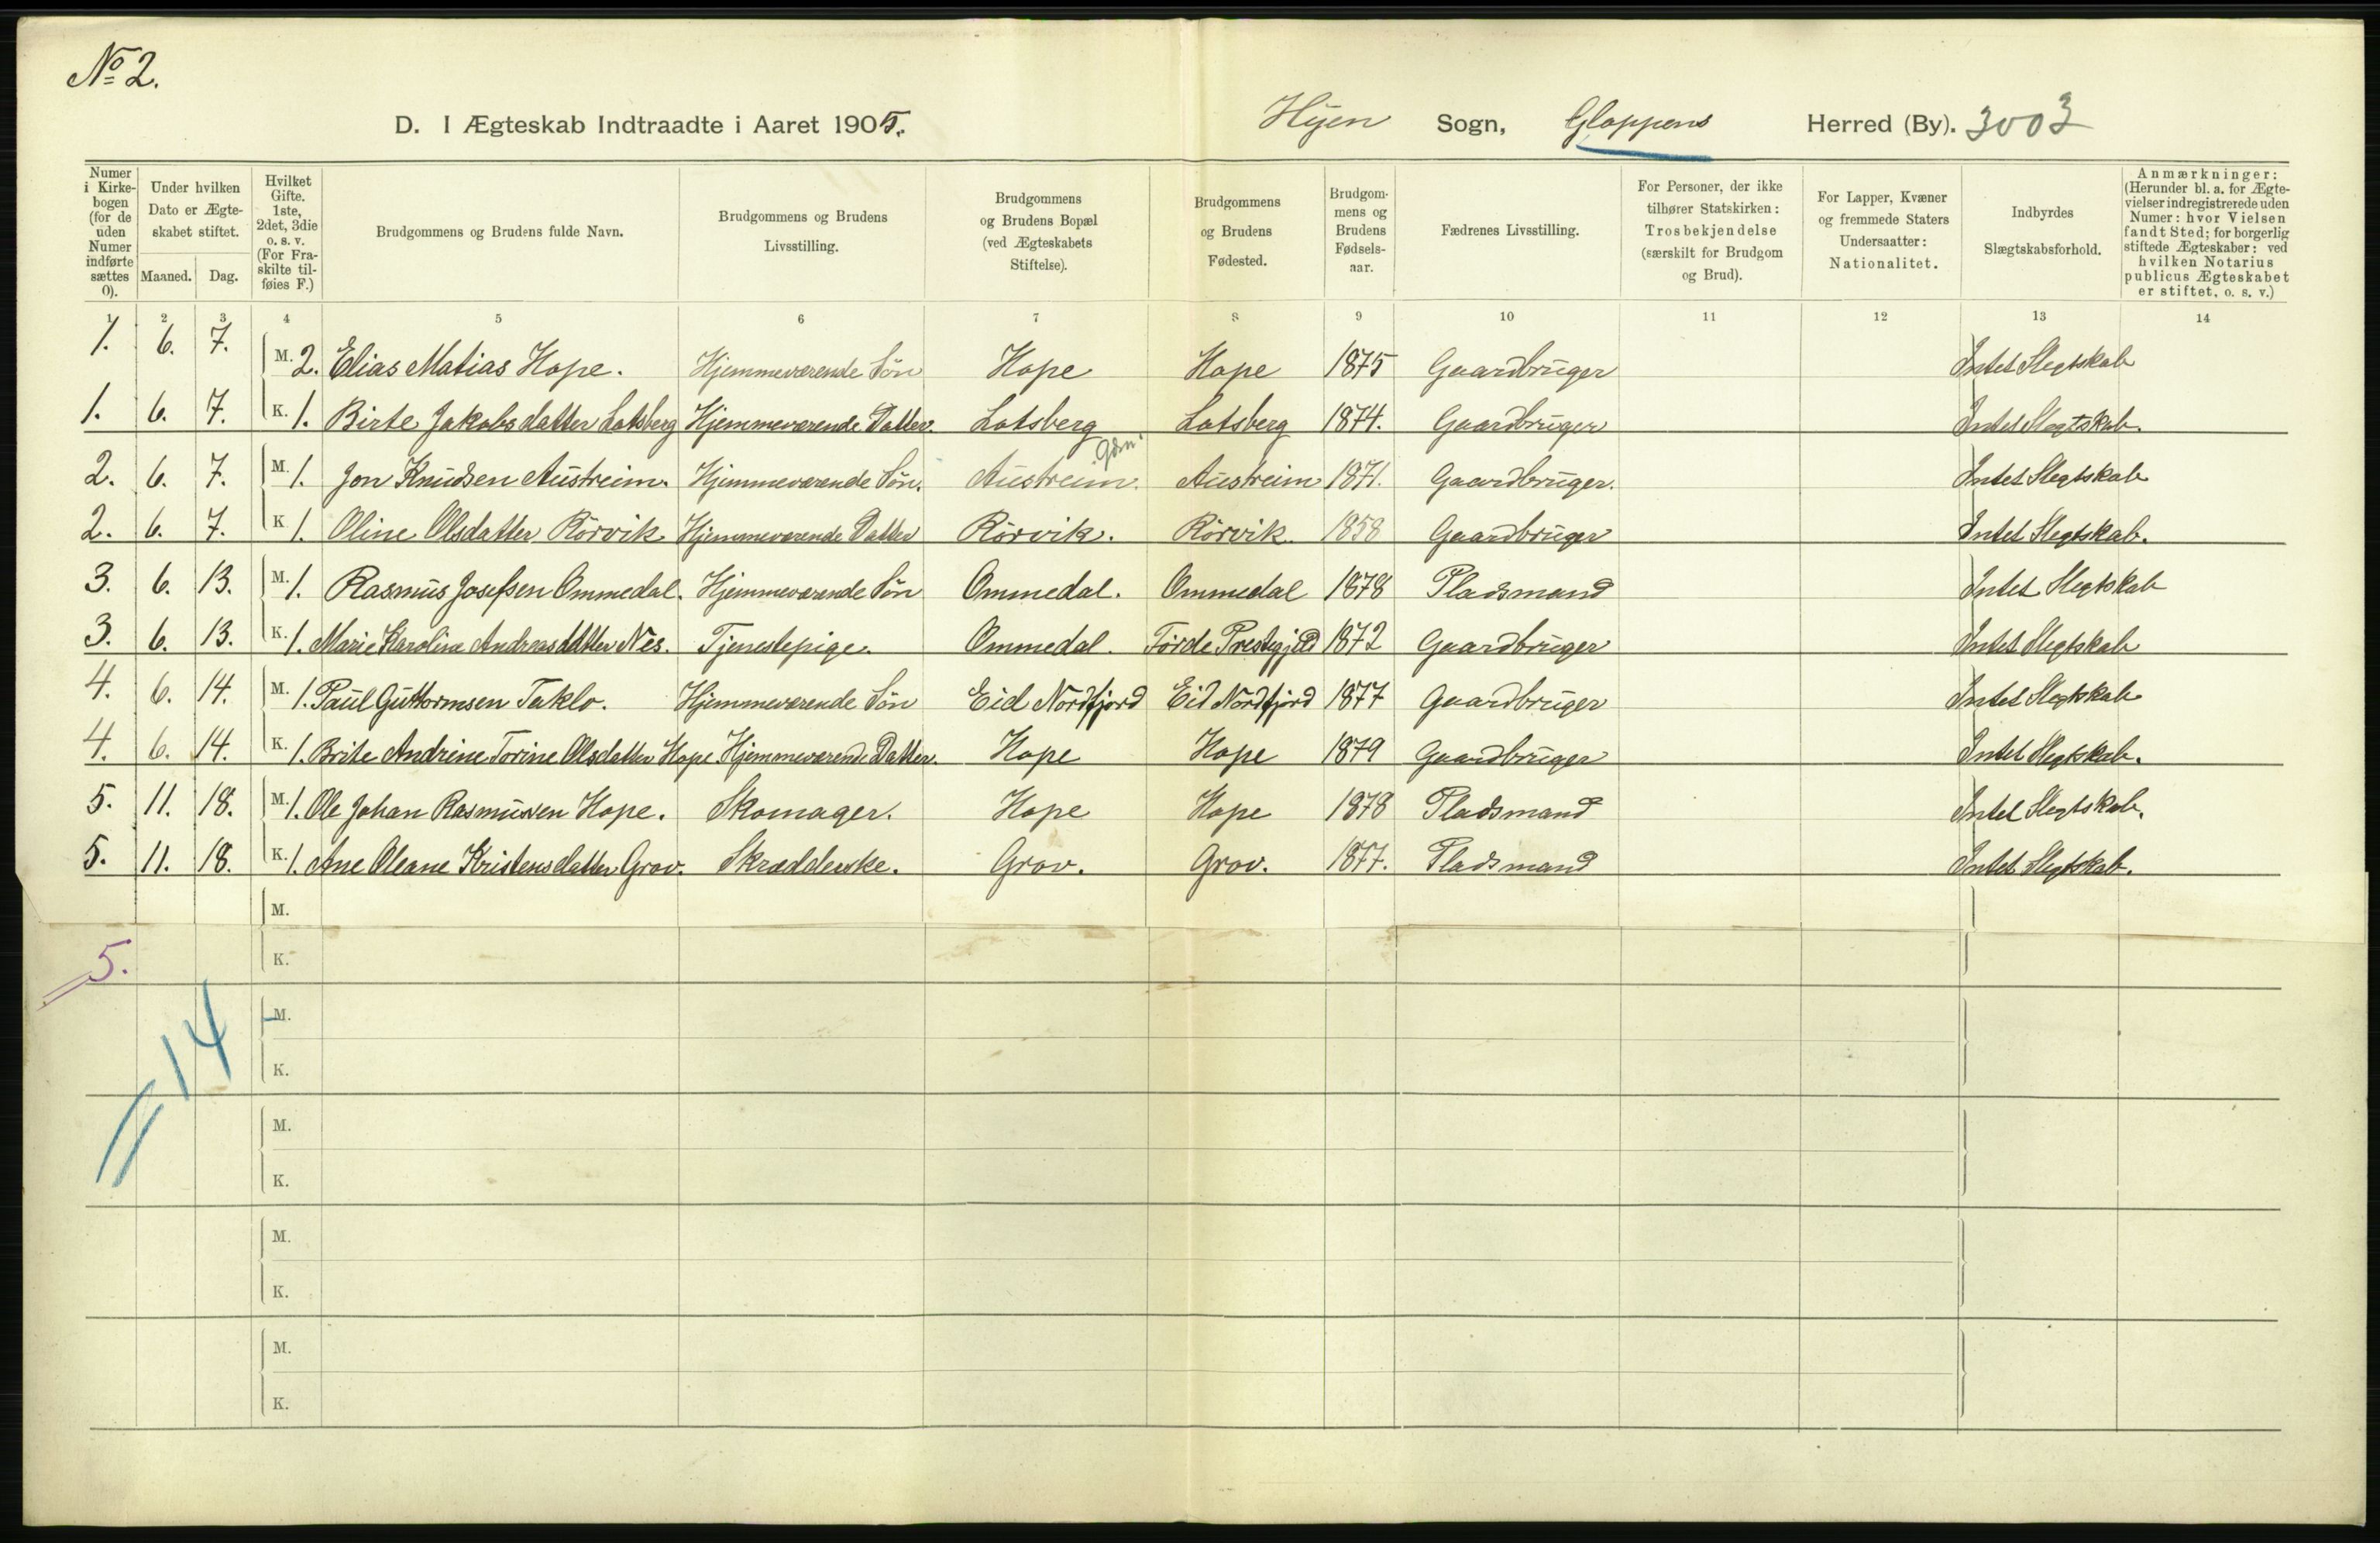 No 2.
D. I Ægteskab Indtraadte i Aaret 1905. Hyen Sogn, Gloppens Herred (By). 3003
Numer i Kirkebogen (for de uden Numer indførte sættes 0).
Under hvilken Dato er Ægteskabet stiftet.
Maaned. Dag.
Hvilket Gifte. 1ste, 2det, 3die o. s. v. (For Fraskilte tilføies F.)
Brudgommens og Brudens fulde Navn.
Brudgommens og Brudens Livsstilling.
Brudgommens og Brudens Bopæl (ved Ægteskabets Stiftelse).
Brudgommens og Brudens Fødested.
Brudgommens og Brudens Fødselsaar.
Fædrenes Livsstilling.
For Personer, der ikke tilhører Statskirken: Trosbekjendelse (særskilt for Brudgom og Brud).
For Lapper, Kvæner og fremmede Staters Undersaatter: Nationalitet.
Indbyrdes Slægtskabsforhold.
Anmærkninger: (Herunder bl. a. for Ægtevielser indregistrerede uden Numer: hvor Vielsen fandt Sted; for borgerlig stiftede Ægteskaber: ved hvilken Notarius publicus Ægteskabet er stiftet, o. s. v.)
1 2 3 4 5 6 7 8 9 10 11 12 13 14
1. 6. 7. M. 2. Elias Matias Hope. Hjemmeværende Søn Hope Hope 1875 Gaardbruger Intet Slegtskab
1. 6. 7. K. 1. Birte Jakobsdatter Lotsberg Hjemmeværende Datter. Lotsberg Lotsberg 1874. Gaardbruger Intet Slegtskab.
2. 6. 7. M. 1. Jon Knudsen Austreim. Hjemmeværende Søn. Austreim. Austreim 1871. Gaardbruger. Intet Slegtskab
2. 6. 7. K 1. Oline Olsdatter Rörvik Hjemmeværende Datter Rörvik. Rörvik. 1858 Gaardbruger Intet Slegtskab.
3. 6. 13. M. 1. Rasmus Josefsen Ommedal. Hjemmeværende Søn Ommedal. Ommedal 1878 Pladsmand Intet Slegtskab
3. 6. 13. K. 1. Marie Karoline Andreasdatter Nes. Tjenestepige. Ommedal. Förde Prestegjeld 1872 Gaardbruger Intet Slegtskab
4. 6. 14. M. 1. Paul Guttormsen Taklo. Hjemmeværende Søn Eid Nordfjord Eid Nordfjord 1877 Gaardbruger Intet Slegtskab
4. 6. 14. K. 1. Brite Andrine Torine Olsdatter Hope Hjemmeværende Datter. Hope Hope 1879 Gaardbruger Intet Slegtskab.
5. 11. 18. M. 1. Ole Johan Rasmussen Hope. Skomager. Hope Hope 1878 Pladsmand Intet Slegtskab.
5. 11. 18. K. 1. Ane Oleane Kristensdatter Grov. Skrædderske. Grov. Grov. 1877. Pladsmand Intet Slegtskab.
M.
5. K.
M.
14 K.
M.
K.
M.
K.
M.
K.